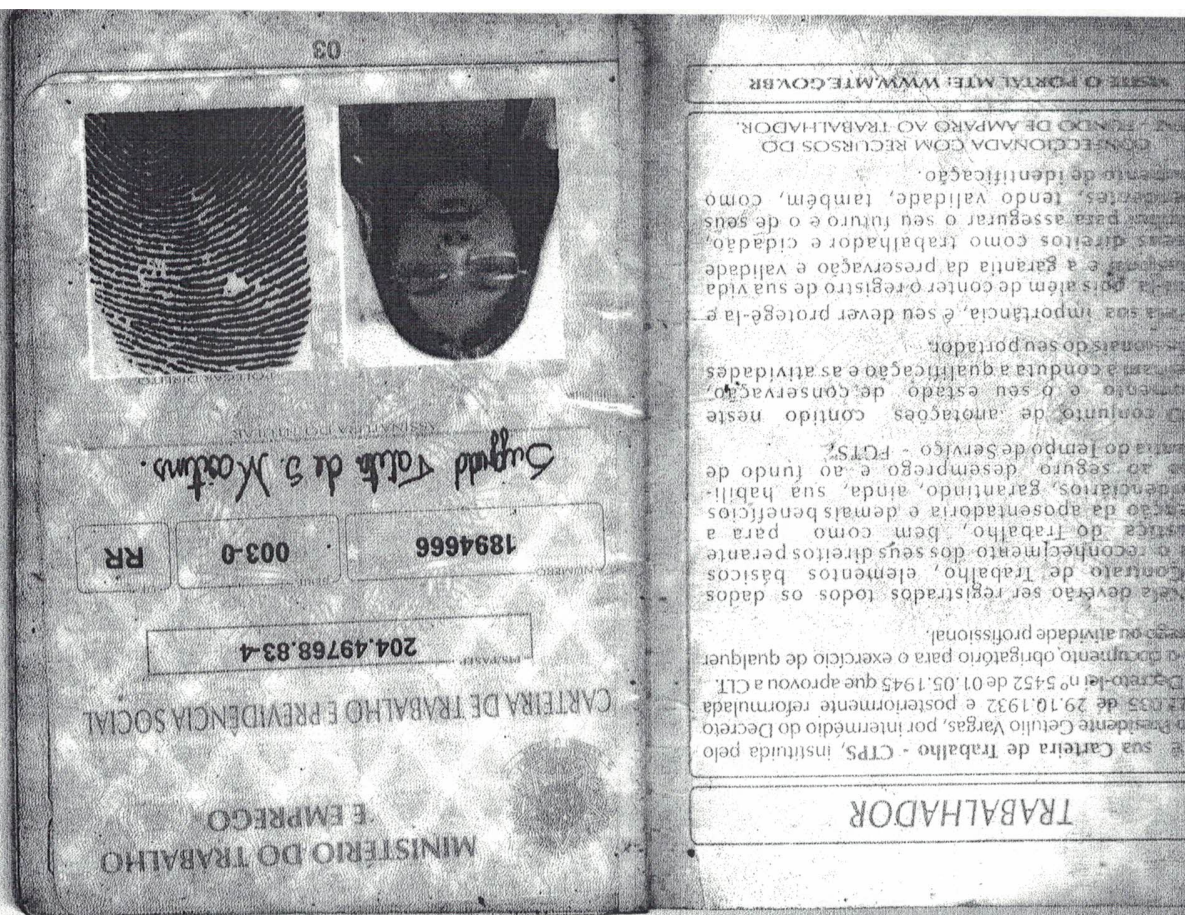 TRABALHADOR
sua Carteira de Trabalho - CTPS, instituída pelo
Presidente Getulio Vargas, por intermédio do Decreto
de 29.10.1932 e posteriormente reformulada
Decreto-lei nº 5452 de 01.05.1945 que aprovou a CLT.
documento obrigatório para o exercício de qualquer
ou atividade profissional.
Nela deverão ser registrados todos os dados
Contrato de Trabalho, elementos básicos
o reconhecimento dos seus direitos perante
Justiça do Trabalho, bem como para a
da aposentadoria e demais benefícios
garantindo, ainda, sua habili-
ao seguro desemprego e ao fundo de
do Tempo de Serviço - FGTS.
O conjunto de anotações contido neste
e o seu estado de conservação,
a conduta a qualificação e as atividades
do seu portador.
Pela sua importância, é seu dever protegê-la e
pois além de conter o registro de sua vida
e a garantia da preservação e validade
seus direitos como trabalhador e cidadão,
para assegurar o seu futuro e o de seus
tendo validade, também, como
de identificação.
CONFECCIONADA COM RECURSOS DO
FUNDO DE AMPARO AO TRABALHADOR.
VISITE O PORTAL MTE: WWW.MTE.GOV.BR
MINISTÉRIO DO TRABALHO
E EMPREGO
CARTEIRA DE TRABALHO E PREVIDÊNCIA SOCIAL
PIS/PASEP
204.49768.83-4
NÚMERO
SÉRIE
UF
1894666
003-0
RR
Talita de S. Martins.
ASSINATURA DO TITULAR
POLEGAR DIREITO
03